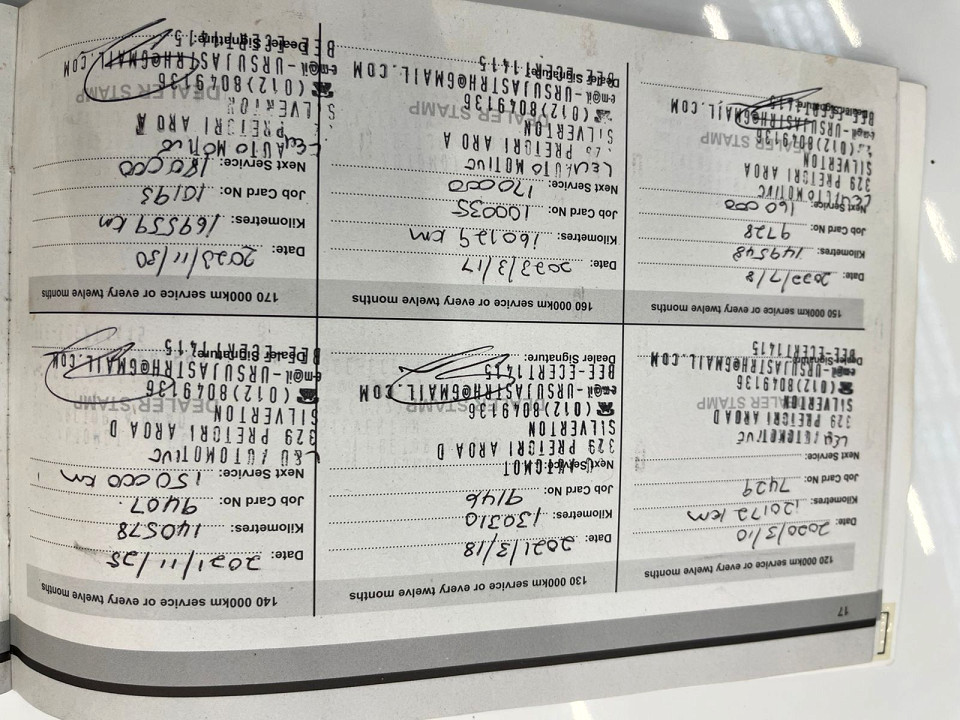 17
120 000km service or every twelve months
Date: 2020/3/10
Kilometres: 120172 km
Job Card No: 7429
Next Service:
329 PRETORIA ROAD
SILVERTON
☎(012)8049136
e-m@il-URSUJASTRH@GMAIL.COM
BEE-ECERT11415
130 000km service or every twelve months
Date: 2021/3/18
Kilometres: 130310
Job Card No: 9146
Next Service:
329 PRETORIA ROAD
SILVERTON
☎(012)8049136
e-m@il-URSUJASTRH@GMAIL.COM
BEE-ECERT11415
Dealer Signature:
140 000km service or every twelve months
Date: 2021/11/25
Kilometres: 140578
Job Card No: 9407
Next Service: 150000 km
AUTOMOTIVE
329 PRETORIA ROAD
SILVERTON
DEALER STAMP
☎(012)8049136
e-m@il-URSUJASTRH@GMAIL.COM
Dealer Signature:
BEE-ECERT11415
150 000km service or every twelve months
Date: 2022/7/8
Kilometres: 149548
Job Card No: 9728
Next Service: 160 000
329 PRETORIA ROAD
SILVERTON
DEALER STAMP
(012)8049136
URSUJASTRH@GMAIL.COM
Dealer Signature:
BEE-ECERT11415
160 000km service or every twelve months
Date: 2023/3/17
Kilometres: 160129 km
Job Card No: 100035
Next Service: 170000
AUTOMOTIVE
PRETORIA ROA
SILVERTON
DEALER STAMP
☎(012)8049136
e-m@il-URSUJASTRH@GMAIL.COM
Dealer Signature:
BEE-ECERT11415
170 000km service or every twelve months
Date: 2023/11/30
Kilometres: 169559 km
Job Card No: 10193
Next Service: 180000
AUTOMOTIVE
PRETORIA ROA
SILVERTON
DEALER STAMP
☎(012)8049136
e-m@il-URSUJASTRH@GMAIL.COM
Dealer Signature:
BEE-ECERT11415